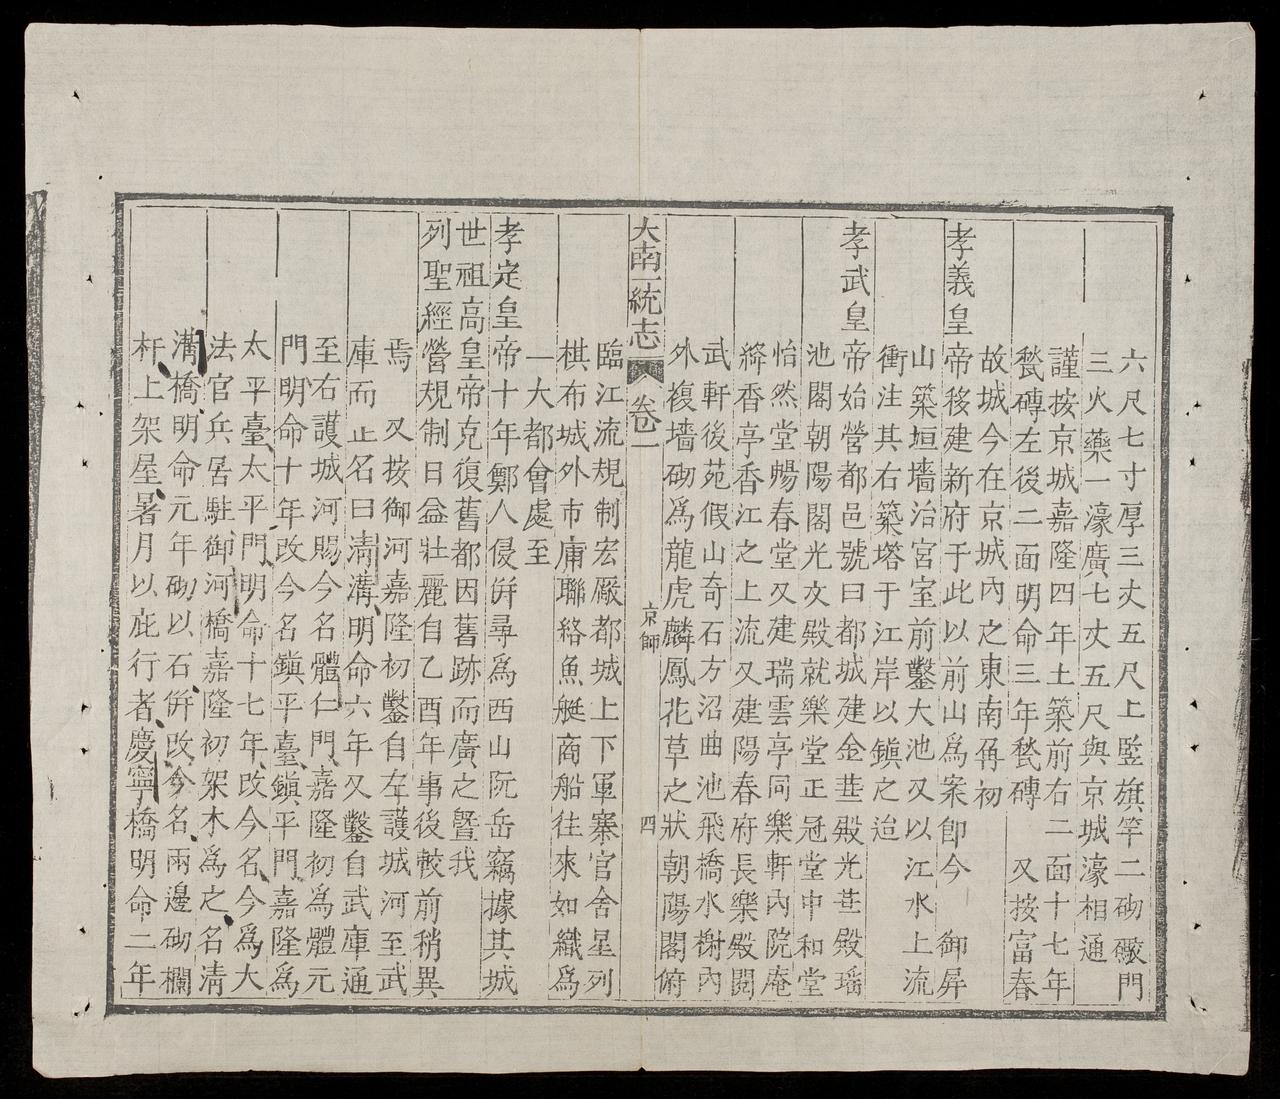 六尺七寸厚三丈五尺上竪旗竿二砌礮門
三火藥一濠廣七丈五尺與京城濠相通
謹按京城嘉隆四年土築前右二面十七年
甃磚左後二面明命三年甃磚 又按富春
故城今在京城內之東南再初
孝義皇帝移建新府于此以前山爲案卽今 御屛
山築垣墻治宮室前鑿大池又以江水上流
衝注其右築塔于江岸以鎮之迨
孝武皇帝始營都邑號曰都城建金華殿光華殿瑤
池閣朝陽閣光文殿就樂堂正冠堂中和堂
怡然堂暢春堂又建瑞雲亭同樂軒內院庵
絳香亭香江之上流又建陽春府長樂殿閱
武軒後苑假山奇石方沼曲池飛橋水榭內
外複墻砌爲龍虎麟鳳花草之狀朝陽閣俯
大南一統志 卷一 京師 四
臨江流規制宏厰都城上下軍寨官舍星列
棋布城外市庯聯絡魚艇商船往來如織爲
一大都會處至
孝定皇帝十年鄭人侵併尋爲西山阮岳竊據其城
世祖高皇帝克復舊都因舊跡而廣之曁我
列聖經營規制日益壯麗自乙酉年事後較前稍異
焉 又按御河嘉隆初鑿自左護城河至武
庫而止名曰淸溝明命六年又鑿自武庫通
至右護城河賜今名體仁門嘉隆初爲體元
門明命十年改今名鎮平臺鎮平門嘉隆爲
太平臺太平門明命十七年改今名今爲大
法官兵居駐御河橋嘉隆初架木爲之名淸
溝橋明命元年砌以石併改今名兩邊砌欄
杆上架屋暑月以庇行者慶寧橋明命二年